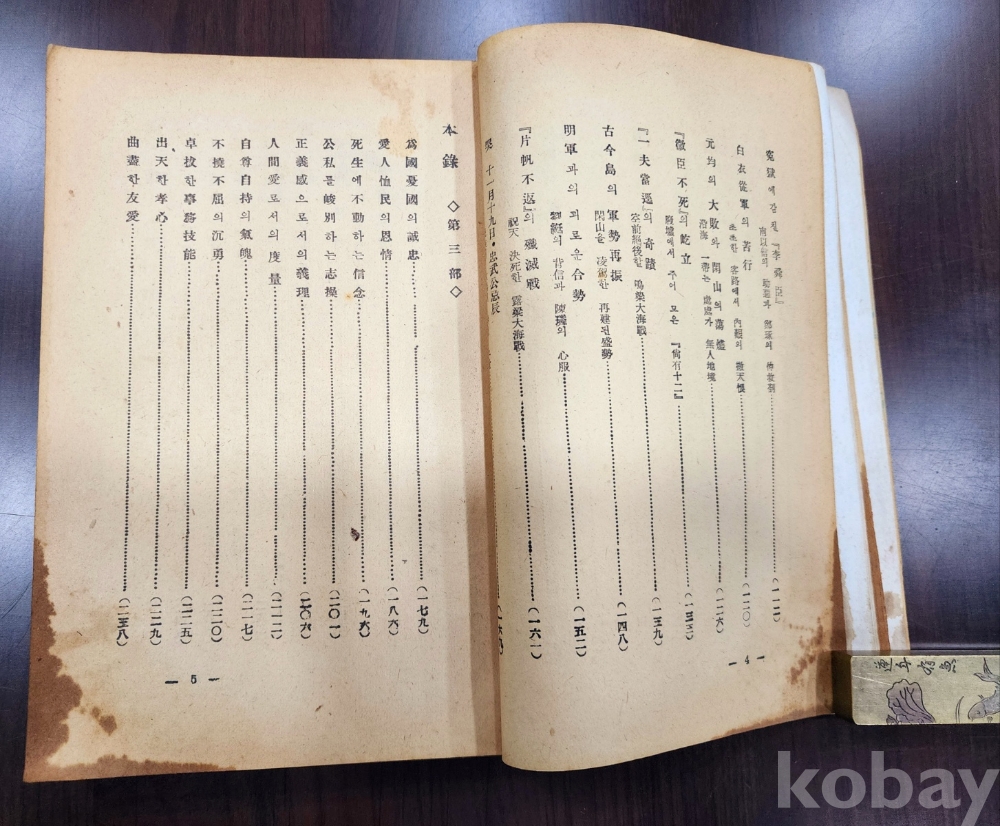 寃獄에 갇힌 『李舜臣』
(一一二)
白衣從軍의 苦行
(一二〇)
元均의 大敗와 閑山의 蕩燼
沿海 一帶는 處處가 無人地境
(一二六)
『微臣不死』의 屹立
廢墟에서 주어 모은 『尙有十二』
(一三三)
『一夫當逕』의 奇蹟
空前絕後한 鳴梁大海戰
(一三九)
古今島의 軍勢再振
閑山을 凌駕한 再建된 盛勢
(一四八)
明軍과의 괴로운 合勢
劉綎의 背信과 陳璘의 心服
(一五二)
『片帆不返』의 殲滅戰
祝天 決死한 露梁大海戰
(一六一)
十一月十九日・忠武公忌辰
— 4 —
本錄 ◇第三部◇
爲國憂國의 誠忠
(一七九)
愛人恤民의 恩情
(一八六)
死生에 不動하는 信念
(一九六)
公私를 峻別하는 志操
(二〇一)
正義感으로서의 義理
(二〇六)
人間愛로서의 度量
(二一二)
自尊自持의 氣魄
(二一七)
不撓不屈의 沉勇
(二二〇)
卓拔한 事務技能
(二二五)
出天한 孝心
(二二九)
曲盡한 友愛
(二三八)
— 5 —
kobay